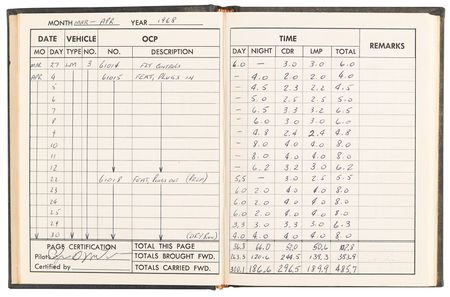 MONTH MAR - APR YEAR 1968
DATE VEHICLE OCP TIME REMARKS
MO DAY TYPE NO. NO. DESCRIPTION DAY NIGHT CDR LMP TOTAL
MAR 27 LM 3 61014 6.0 — 3.0 3.0 6.0
APR 4 61015 FEAT, PLUGS IN — 4.0 2.0 2.0 4.0
5 — 4.5 2.3 2.2 4.5
6 — 5.0 2.5 2.5 5.0
7 — 6.5 3.3 3.2 6.5
8 — 6.0 3.0 3.0 6.0
9 — 4.8 2.4 2.4 4.8
10 — 8.0 4.0 4.0 8.0
11 — 8.0 4.0 4.0 8.0
12 — 6.2 3.2 3.0 6.2
22 61018 FEAT, PLUGS OUT 5.5 — 3.0 2.5 5.5
6.0 2.0 4.0 4.0 8.0
6.0 2.0 4.0 4.0 8.0
6.0 2.0 4.0 4.0 8.0
3.3 3.0 3.3 3.0 6.3
30 (DRY RUN) 4.0 4.0 4.0 4.0 8.0
PAGE CERTIFICATION TOTAL THIS PAGE
Pilot TOTALS BROUGHT FWD. 120.6 244.5 139.3
Certified by TOTALS CARRIED FWD. 186.6 296.5 189.9 485.7